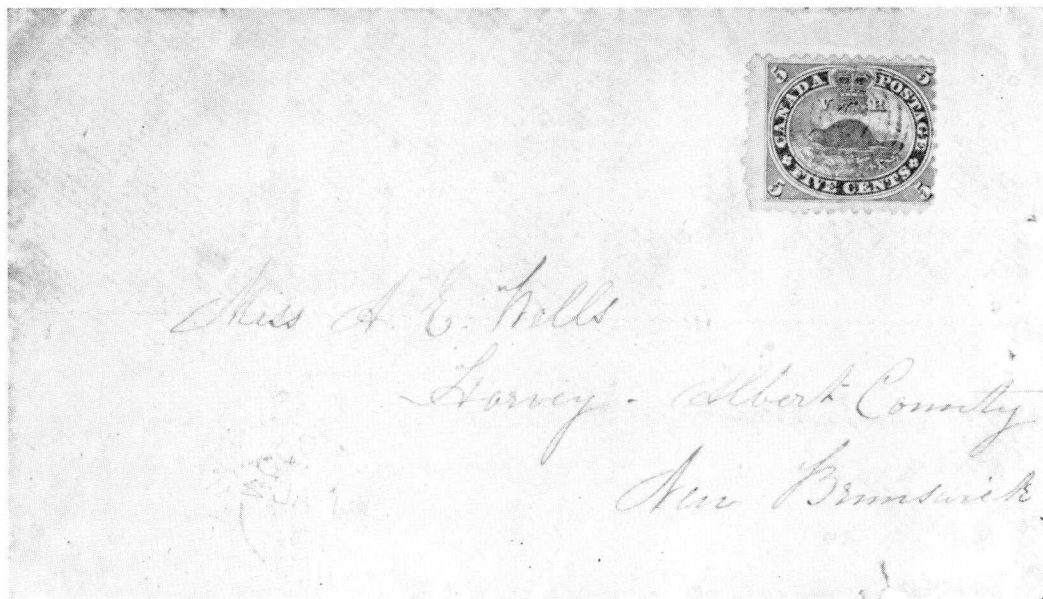 5 5
CANADA POSTAGE
V R
FIVE CENTS
5 5
Miss A. E. Wells
Harvey - Albert County
New Brunswick